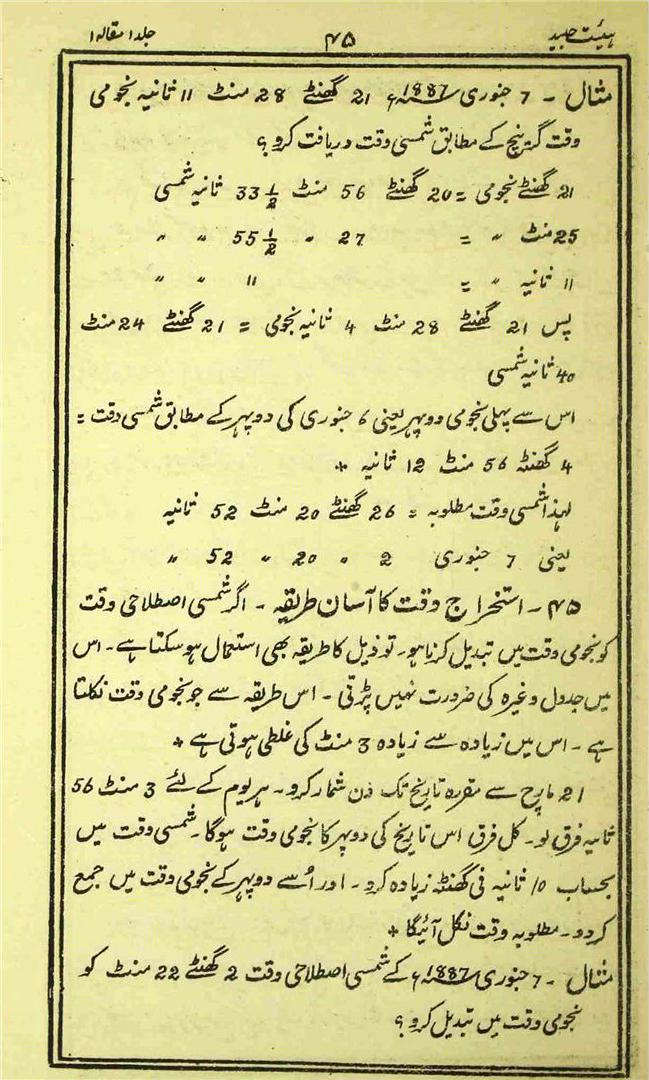 ہیئت جدید ۴۵ جلد۱ مقالہ۱
مثال ۔ 7 جنوری 1887ء 21 گھنٹے 28 منٹ 11 ثانیہ نجومی
وقت گرینچ کے مطابق شمسی وقت دریافت کرو؟
21 گھنٹے نجومی = 20 گھنٹے 56 منٹ 33 1/2 ثانیہ شمسی
25 منٹ 〃 = 27 〃 55 1/2 〃 〃
11 ثانیہ 〃 = 11 〃 〃
پس 21 گھنٹے 28 منٹ 4 ثانیہ نجومی = 21 گھنٹے 24 منٹ
40 ثانیہ شمسی
اس سے پہلی نجومی دوپہر یعنی 6 جنوری کی دوپہر کے مطابق شمسی وقت =
4 گھنٹہ 56 منٹ 12 ثانیہ +
لہذا شمسی وقت مطلوبہ = 26 گھنٹے 20 منٹ 52 ثانیہ
یعنی 7 جنوری 2 〃 20 〃 52 〃
۴۵ ۔ استخراج وقت کا آسان طریقہ ۔ اگر شمسی اصطلاحی وقت
کو نجومی وقت میں تبدیل کرنا ہو۔ تو ذیل کا طریقہ بھی استعمال ہو سکتا ہے۔ اس
میں جدول وغیرہ کی ضرورت نہیں پڑتی ۔ اس طریقہ سے جو نجومی وقت نکلتا
ہے ۔ اس میں زیادہ سے زیادہ 3 منٹ کی غلطی ہوتی ہے +
21 مارچ سے مقررہ تاریخ تک دن شمار کرو۔ ہر یوم کے لئے 3 منٹ 56
ثانیہ فرق لو۔ کل فرق اس تاریخ کی دوپہر کا نجومی وقت ہوگا۔ شمسی وقت میں
بحساب 10 ثانیہ فی گھنٹہ زیادہ کرو۔ اور اُسے دوپہر کے نجومی وقت میں جمع
کردو۔ مطلوبہ وقت نکل آئیگا +
مثال ۔ 7 جنوری 1887ء کے شمسی اصطلاحی وقت 2 گھنٹے 22 منٹ کو
نجومی وقت میں تبدیل کرو؟